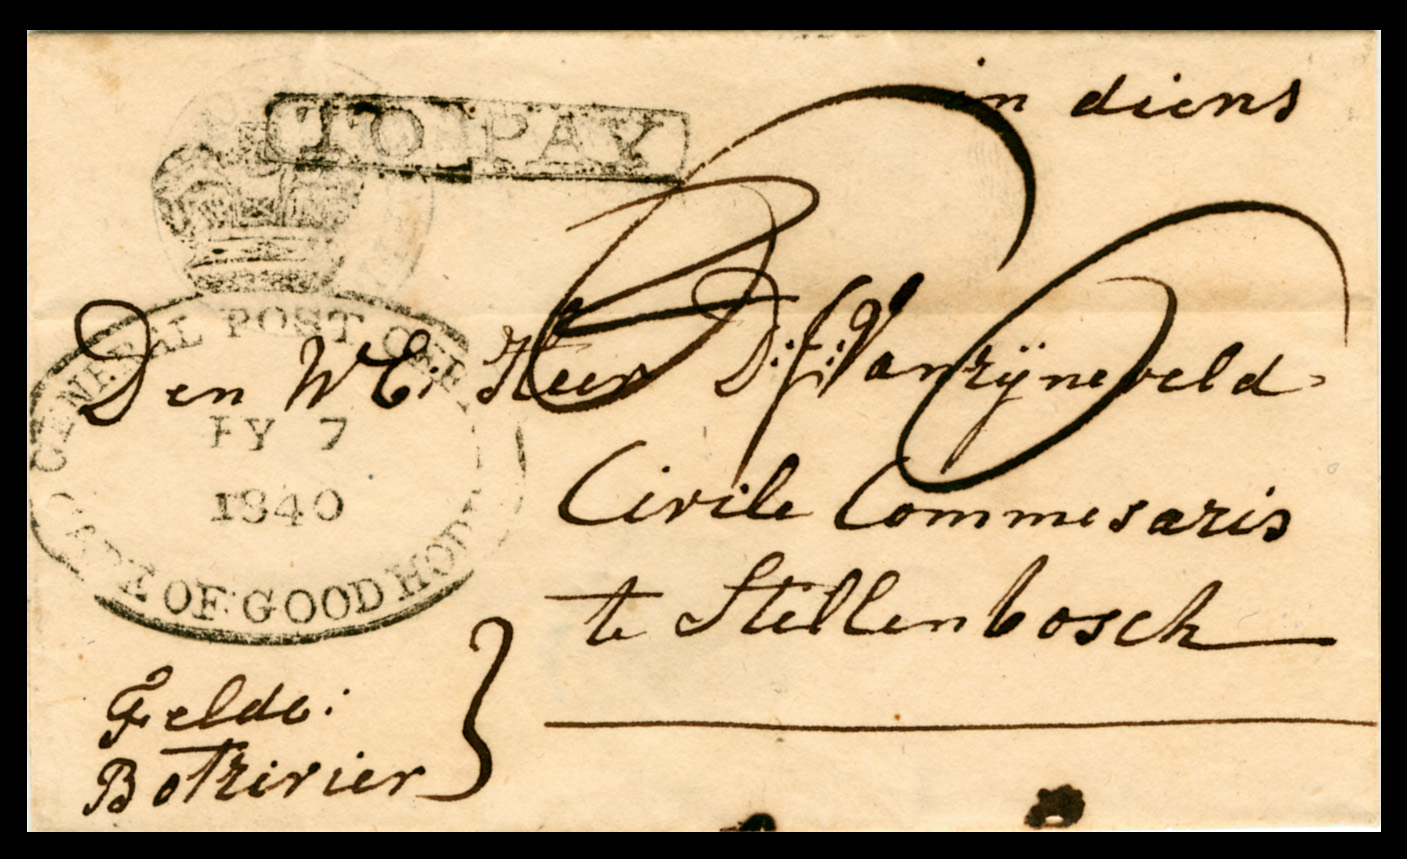 in diens
TO PAY
GENERAL POST OFF
FY 7
1840
CAPE OF GOOD HOPE
Den WE: Heer D:f: Vanrijneveld
Civile Commesaris
te Stellenbosch
Feldc:
Botrivier